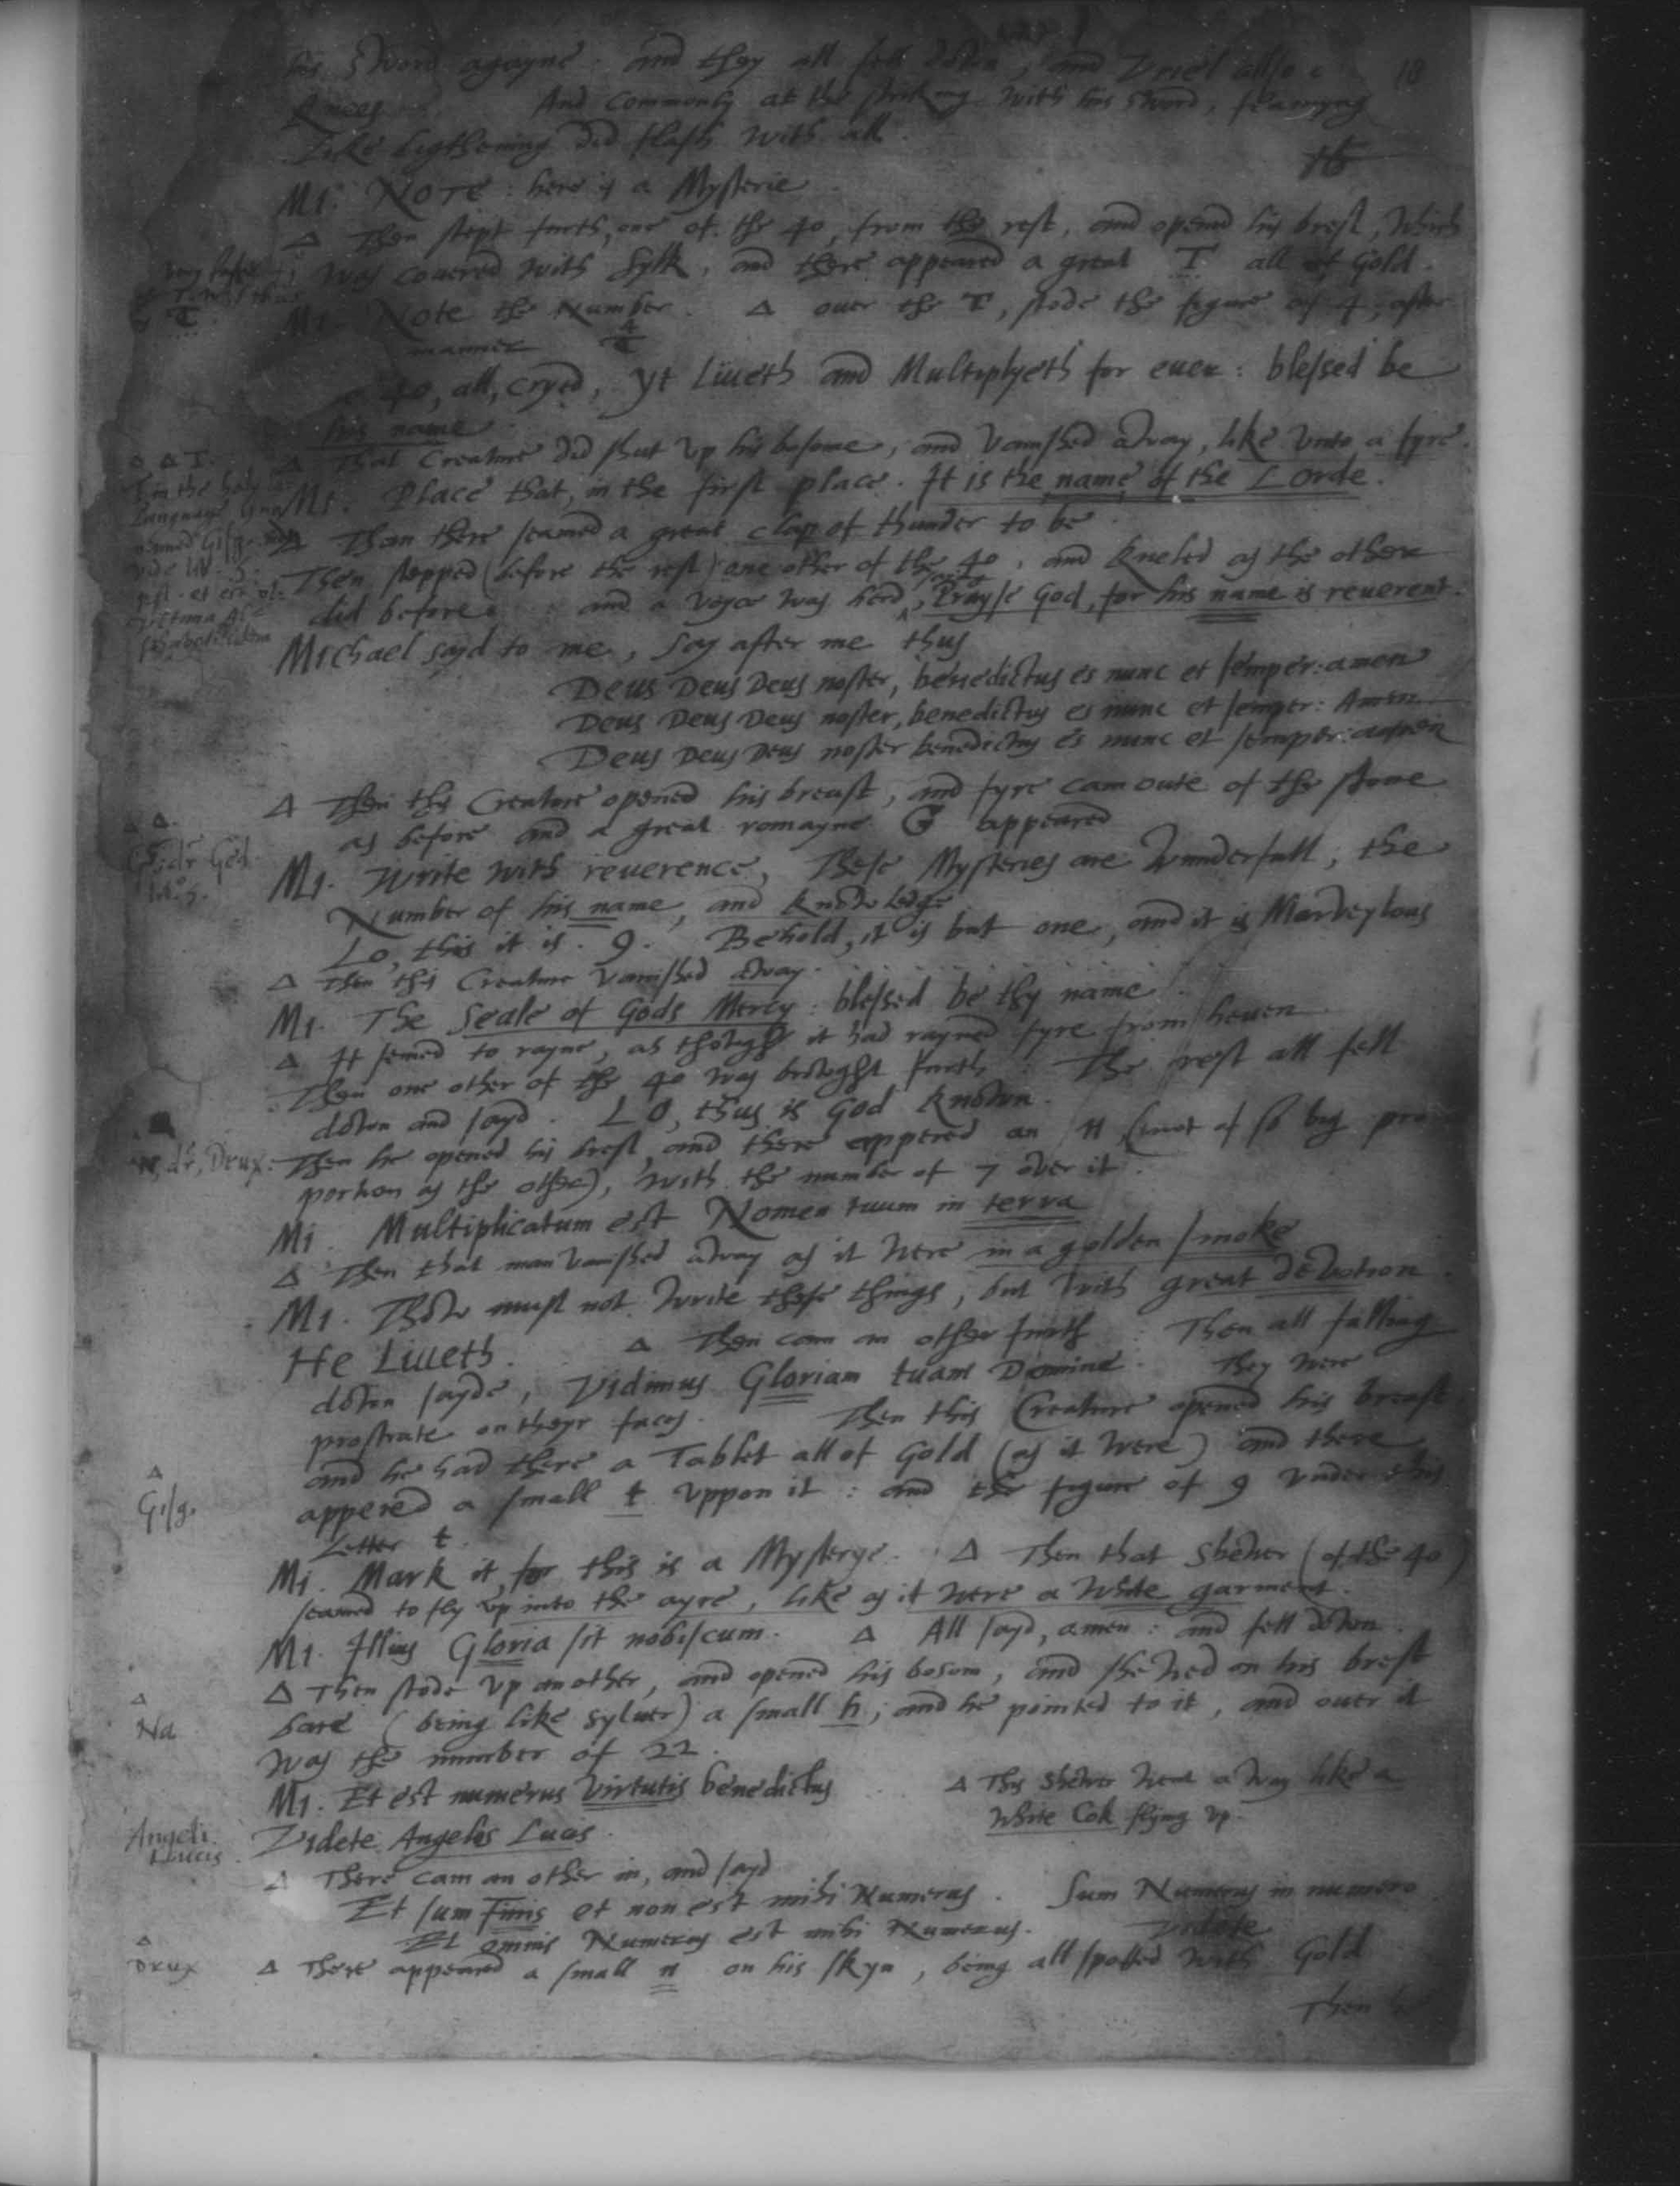 his sword agayne: and they all fell down, and Vriel allso
18
knees And commonly at the striking with his sword, flamyng
Like Ligthening did flash with all.
16
Mi. NOTE: here is a Mysterie
Δ Then stept furth, one of the 40, from the rest, and opened his brest, which
was couered with Sylk, and there appeared a great T all of Gold.
Mi. Note the Number. Δ ouer the T, stode the figure of 4, after
manner 4 T
40, all, cryed, Yt Liueth and Multiplyeth for euer: blessed be
his name
Δ That Creature did shut vp his bosome, and vanished away, like vnto a fyre.
Mi. Place that, in the first place. It is the name of the Lorde.
Δ Than there seamed a great clap of thunder to be
Then stepped (before the rest) one other of the 40, and kneled as the other
did before: and a voyce was herd, Prayse God, for his name is reuerent.
Michael sayd to me, Say after me thus
Deus Deus Deus noster, benedictus es nunc et semper: amen
Deus Deus Deus noster, benedictus es nunc et semper: Amen
Deus Deus Deus noster benedictus es nunc et semper: amen
Δ Then this Creature opened his breast, and fyre cam oute of the stone
as before and a great romayne G appeared
Ged
Mi. Write with reuerence, These Mysteries are wunderfull, the
Number of his name, and knowledge
Lo, this it is. 9. Behold, it is but one, and it is Marveylous
Δ Then this Creature vanished away.
Mi. The Seale of Gods Mercy: blessed be thy name.
Δ It semed to rayne, as though it had rayned fyre from heuen
Then one other of the 40 was browght furth: The rest all fell
down and sayd. LO, thus is God known.
Drux. Then he opened his brest, and there appered an n (not of so big pro
portion as the other), with the number of 7 over it.
Mi. Multiplicatum est Nomen tuum in terra
Δ Then that man vanished away as it were in a golden smoke
Mi. Thow must not write these things, but with great devotion.
He Liueth. Δ Then cam an other furth. Then all falling
down sayde, Vidimus Gloriam tuam Domine. They were
prostrate on theyr faces. Then this Creature opened his breast
and he had there a Tablet all of Gold (as it were) and there
Δ
Gisg.
appered a small t vppon it: and the figure of 9 vnder this
Letter t.
Mi. Mark it, for this is a Mysterye. Δ Then that shewer (of the 40)
seamed to fly vp into the ayre, like as it were a white garment.
Mi. Illius Gloria sit nobiscum. Δ All sayd, amen: and fell down.
Δ Then stode vp another, and opened his bosom, and shewed on his brest
Δ
Na
bare (being like syluer) a small h; and he pointed to it, and ouer it
was the number of 22.
Mi. Et est numerus virtutis benedictus
Δ This shewer went away like a
White Cok flying vp.
Angeli Lucis.
Videte Angelos Lucis.
Δ There cam an other in, and sayd
Et sum Finis et non est mihi Numerus. Sum Numerus in numero
Et omnis Numerus est mihi Numerus. Videte
Δ
Drux
Δ There appeared a small n on his skyn, being all spotted with Gold
Then